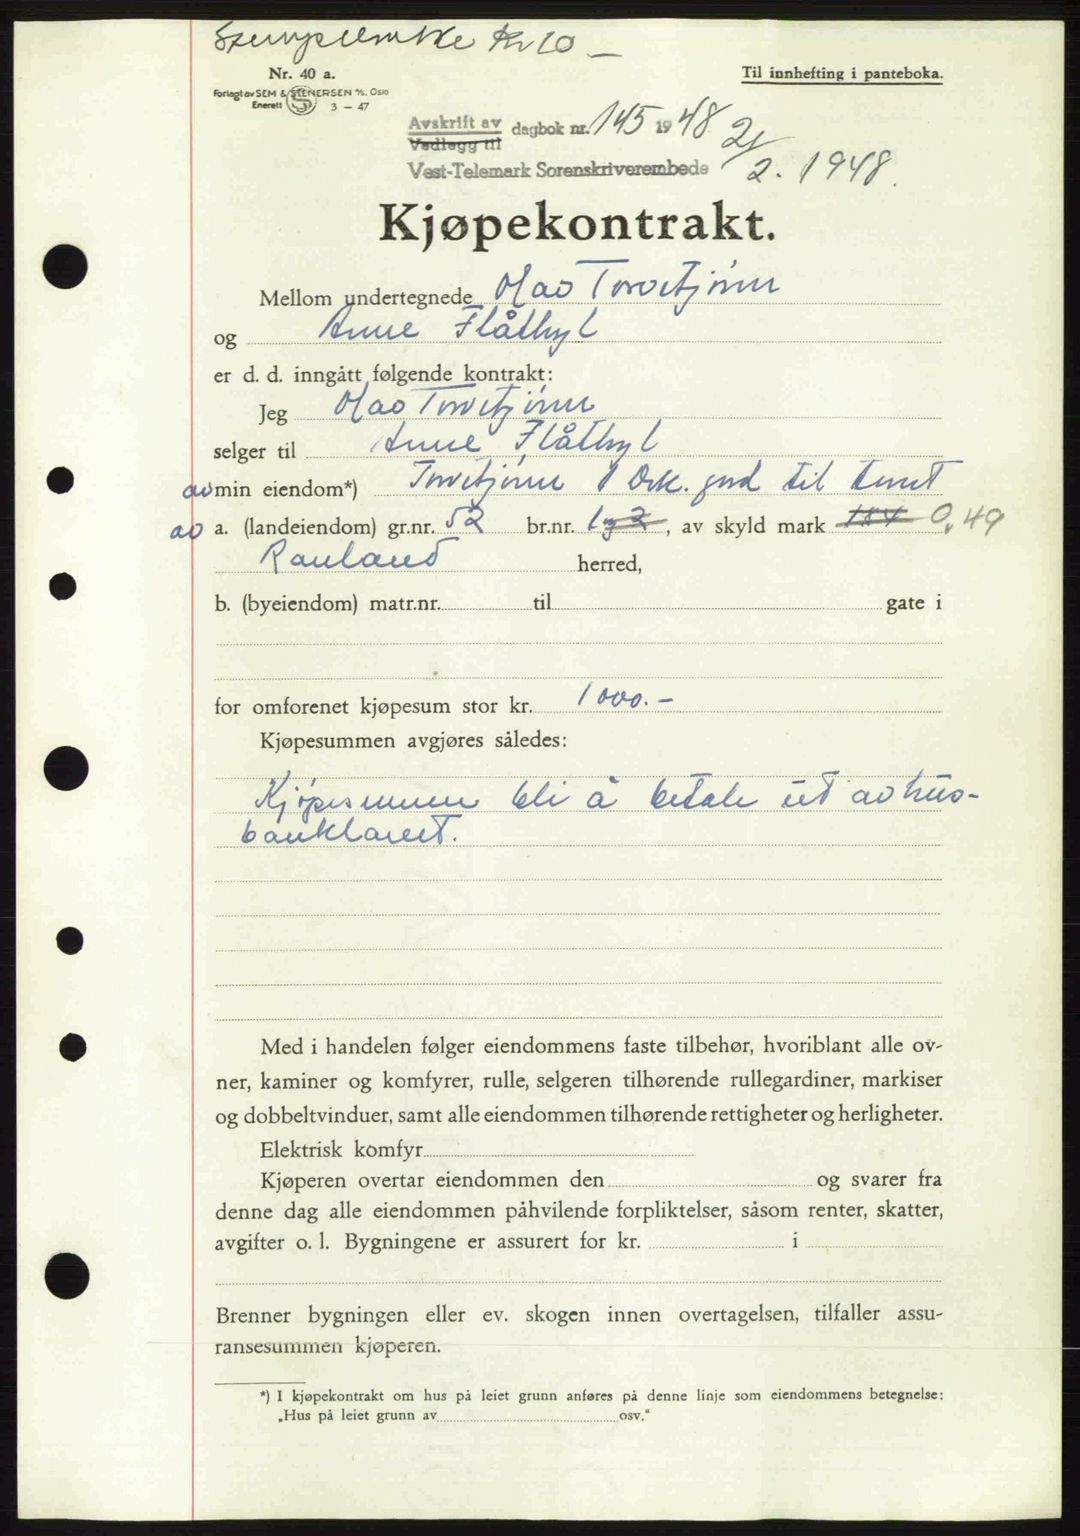 Stempelmerke Kr 10 –
Nr. 40 a.
Til innhefting i panteboka.
Forlagt av SEM & STENERSEN A/S. Oslo
Enerett S 3 – 47
Avskrift av
Vedlegg til
dagbok nr. 145 1948 21/2. 1948.
Vest-Telemark Sorenskriverembede
Kjøpekontrakt.
Mellom undertegnede Olav Torvetjønn
og Anne Flåthyl
er d. d. inngått følgende kontrakt:
Jeg Olav Torvetjønn
selger til Anne Flåthyl
av min eiendom*) Torvetjønn 1 Dek. jord til tomt
av a. (landeiendom) gr.nr. 52 br.nr. 1 og 2, av skyld mark 184 0,49
Rauland herred,
b. (byeiendom) matr.nr. til gate i
for omforenet kjøpesum stor kr. 1000.–
Kjøpesummen avgjøres således:
Kjøpesummen bli å betale ut av hus-
banklånet.
Med i handelen følger eiendommens faste tilbehør, hvoriblant alle ov-
ner, kaminer og komfyrer, rulle, selgeren tilhørende rullegardiner, markiser
og dobbeltvinduer, samt alle eiendommen tilhørende rettigheter og herligheter.
Elektrisk komfyr
Kjøperen overtar eiendommen den og svarer fra
denne dag alle eiendommen påhvilende forpliktelser, såsom renter, skatter,
avgifter o. l. Bygningene er assurert for kr. i
Brenner bygningen eller ev. skogen innen overtagelsen, tilfaller assu-
ransesummen kjøperen.
*) I kjøpekontrakt om hus på leiet grunn anføres på denne linje som eiendommens betegnelse:
„Hus på leiet grunn av osv."